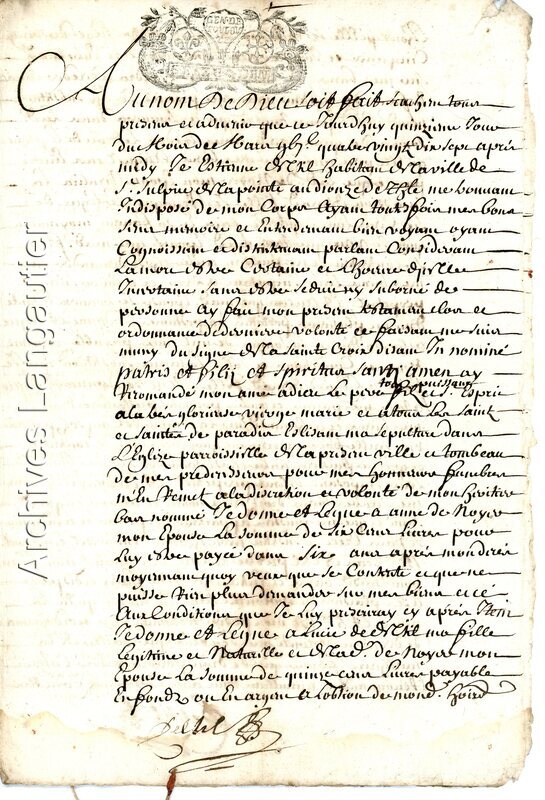 GEN. DE
Au nom De Dieu soit fait sachen tous
presens et advenir que ce Jourdhuy quinzieme Jour
du Mois de Mars quatre vingt dix sept apres
midy Je Estienne Deltil habitan de la ville de
St Sulpice de la pointe au dioceze de me trouvam
Indisposé de mon Corps Ayam toutefois mes bons
sens memoire et Entendemam bien voyam oyam
Cognoissam et distintemam parlam Consideram
La mort estre Certaine et Lheure dicelle
Incertaine sans estre seduit ny suborné de
personne ay fait mon presen testamam clos et
ordonnance de derniere volonté ce faisam me suis
muny du signe de la sainte Croix disam In nominé
patris et filii et spiritus santi amen ay
Recomandé mon ame a dieu Le pere tout puissant filz et St Esprit
a la bes glorieuse vierge marie et a tous Les saints
et saintes de paradis Eslisam ma sepulture dans
L'Eglize parroissielle de la presen ville et tombeau
de mes predecesseurs pour mes Honneurs funebres
m'En Remet a la discretion et volonté de mon heritier
bas nommé Je donne et Legue a anne de Noyer
mon Epouse La somme de six Cens Livres pour
Luy estre payé dans six ans apres mon deces
moyennam quoy veux que se Contente et que ne
puisse Rien plus demander sur mes biens et cé
Aux Conditions que Je Luy prescriray cy apres Item
Je donne et Legue a Lucie de Deltil ma fille
Legitime et Naturelle et de lad. de Noyer mon
Epouse La somme de quinze cens Livres payable
En fonds ou En argent a Loption de mond. Heird
Deltil
Archives Langautier